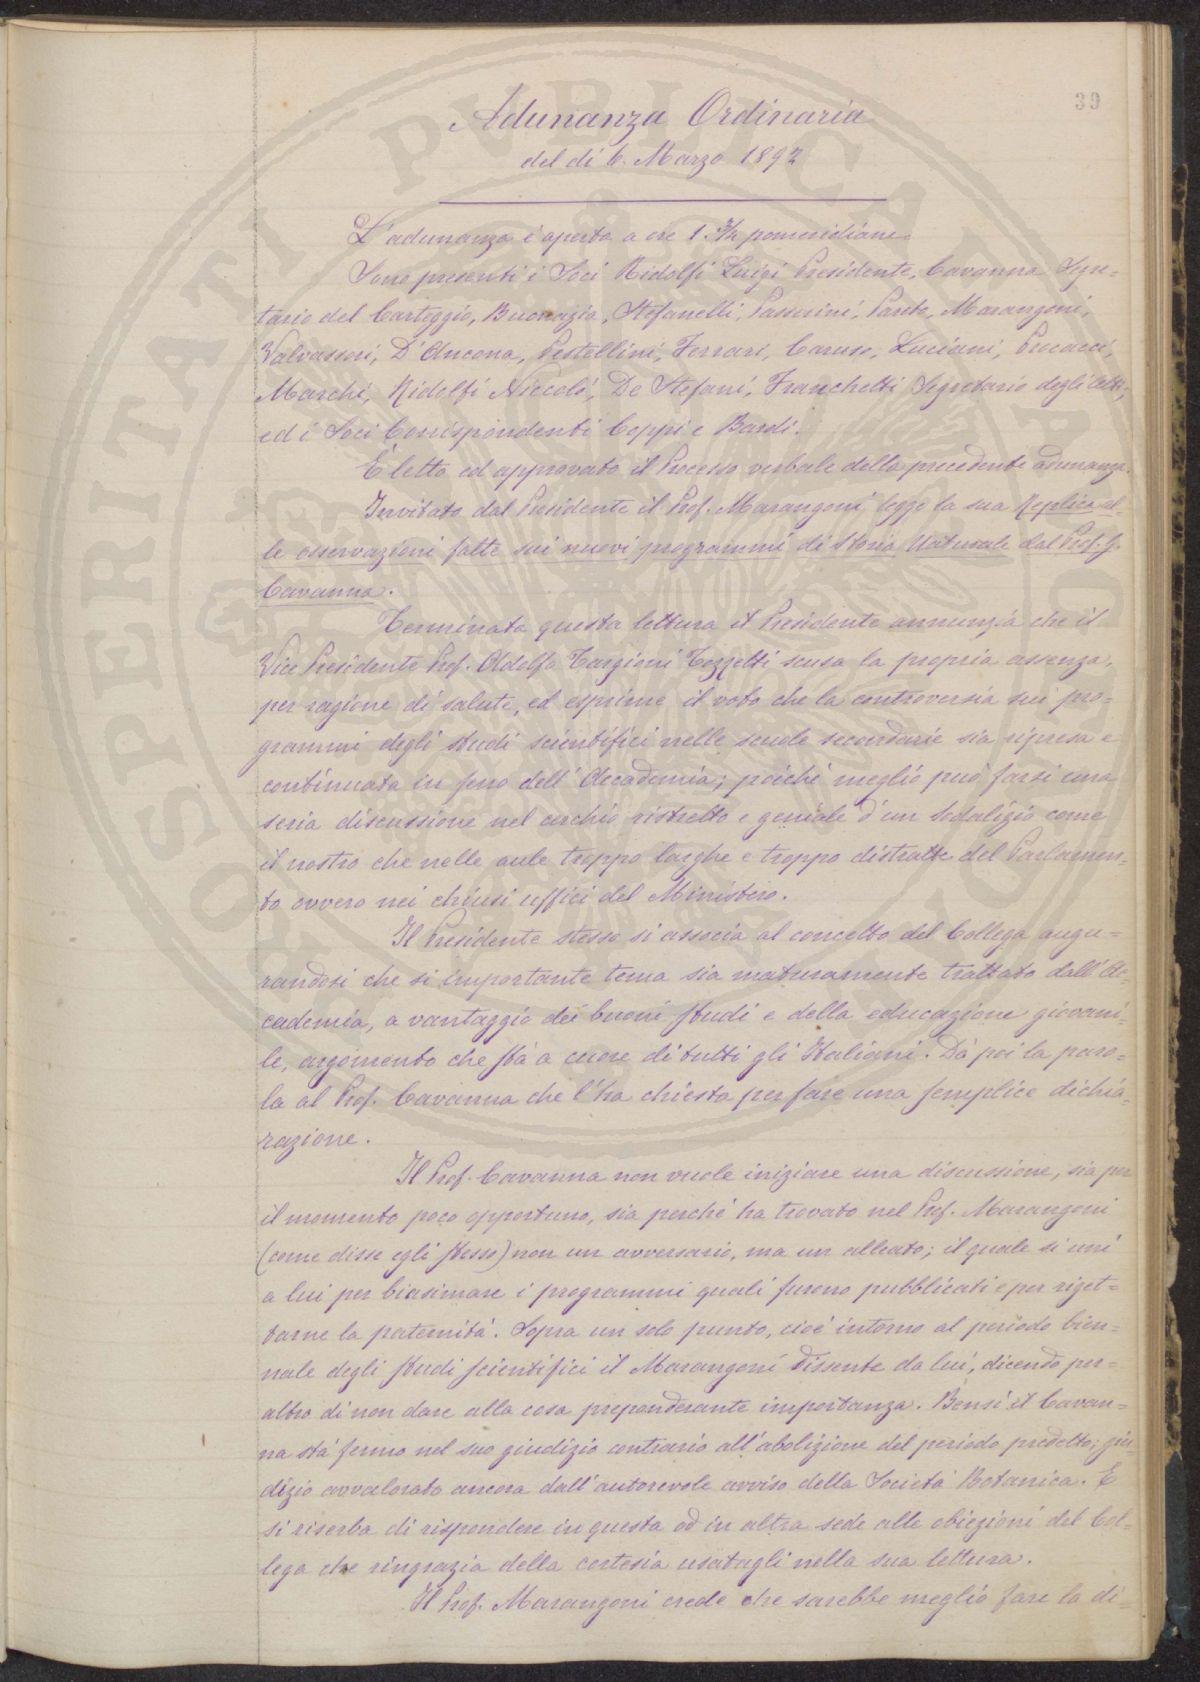 39
Adunanza Ordinaria
del dì 6. Marzo 1892
L'adunanza è aperta a ore 1 3/4 pomeridiane.
Sono presenti i Soci Ridolfi Luigi Presidente, Cavanna Segre=
tario del Carteggio, Buonazia, Stefanelli, Passerini, Pareto, Marangoni,
Valvassori, D'Ancona, Pestellini, Ferrari, Caruso, Luciani, Pucacci,
Marchi, Ridolfi Niccolò, De Stefani, Franchetti Segretario degli atti,
ed i Soci Corrispondenti Coppi e Bardi.
È letto ed approvato il Processo verbale della precedente adunanza.
Invitato dal Presidente il Prof. Marangoni legge la sua Replica al=
le osservazioni fatte sui nuovi programmi di Storia Naturale dal Prof. G.
Cavanna.
Terminata questa lettura il Presidente annunzia che il
Vice Presidente Prof. Adolfo Targioni Tozzetti scusa la propria assenza,
per ragione di salute, ed esprime il voto che la controversia sui pro=
grammi degli studi scientifici nelle scuole secondarie sia ripresa e
continuata in seno dell'Accademia; poichè meglio può farsi una
seria discussione nel cerchio ristretto e geniale d'un Sodalizio come
il nostro che nelle aule troppo larghe e troppo distratte del Parlamen=
to ovvero nei chiusi uffici del Ministero.
Il Presidente stesso si associa al concetto del Collega augu=
randosi che sì importante tema sia maturamente trattato dall'Ac=
cademia, a vantaggio dei buoni studi e della educazione giovani=
le, argomento che stà a cuore di tutti gli Italiani. Dà poi la paro=
la al Prof. Cavanna che l'ha chiesta per fare una semplice dichia=
razione.
Il Prof. Cavanna non vuole iniziare una discussione, sia per
il momento poco opportuno, sia perchè ha trovato nel Prof. Marangoni
(come disse egli stesso) non un avversario, ma un alleato; il quale si unì
a lui per biasimare i programmi quali furono pubblicati e per riget=
tarne la paternità. Sopra un solo punto, cioè intorno al periodo bien=
nale degli studi scientifici il Marangoni dissente da lui, dicendo per=
altro di non dare alla cosa preponderante importanza. Bensì il Cavan=
na stà fermo nel suo giudizio contrario all'abolizione del periodo predetto; giu
dizio avvalorato ancora dall'autorevole avviso della Società Botanica. E
si riserba di rispondere in questa od in altra sede alle obiezioni del Col=
lega che ringrazia della cortesia usatagli nella sua lettura.
Il Prof. Marangoni crede che sarebbe meglio fare la di=